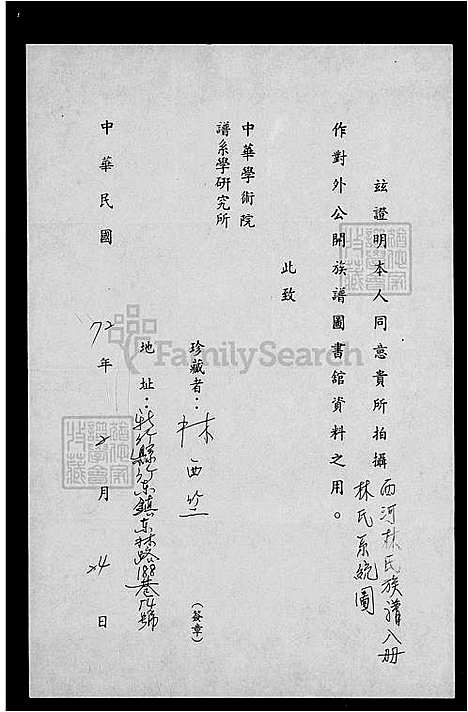 玆證明本人同意貴所拍攝西河林氏族譜八册
林氏系統圖
作對外公開族譜圖書舘資料之用。
此致
中華學術院
譜系學研究所
珍藏者：林西竺
（簽章）
地址：新竹縣竹東鎮東林路188巷74號
中華民國72年2月24日
FamilySearch